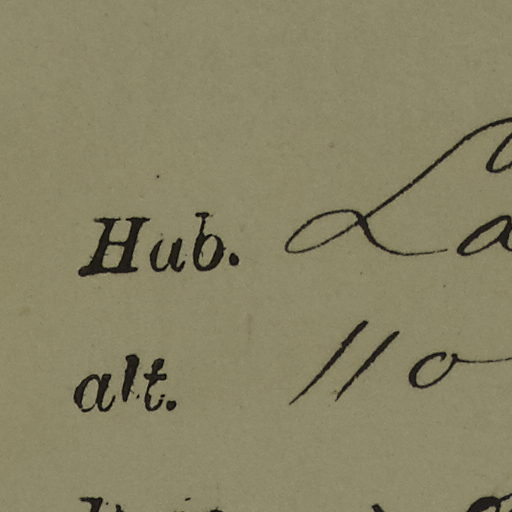 Hab. La
alt. 110